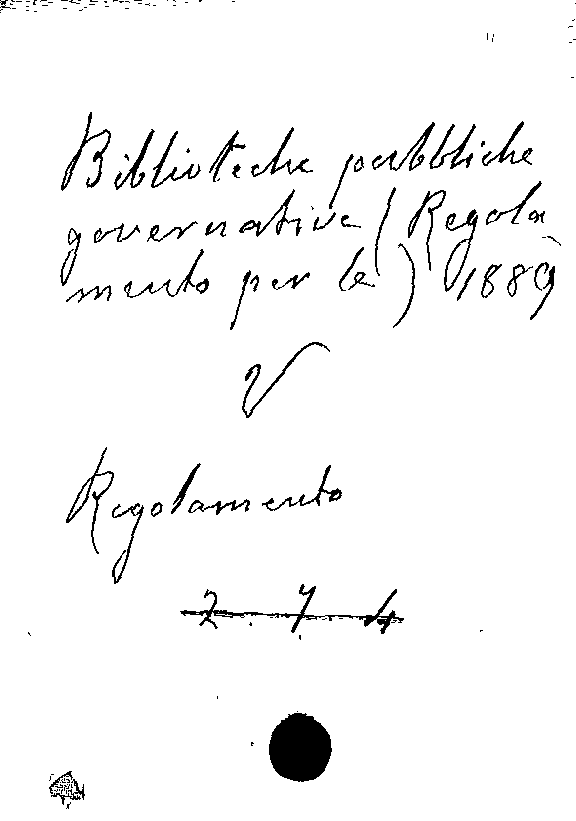 Biblioteche pubbliche
governative (Regola
mento per le) 1889
V
Regolamento
2. 7. 4